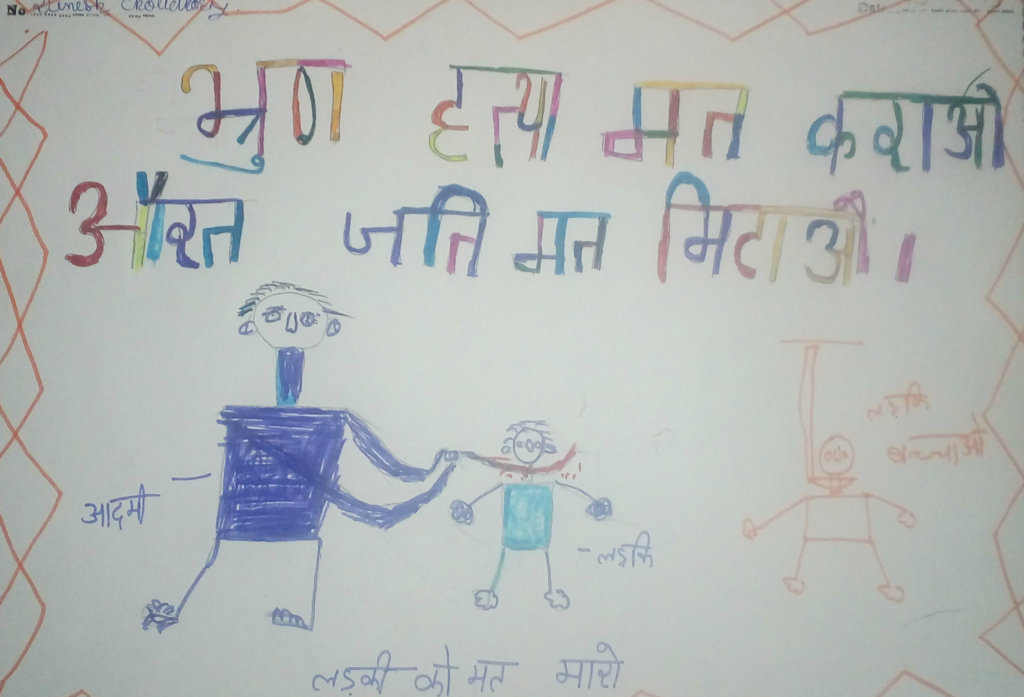 No Dinesh Choudhary.
Date
भ्रुण हत्या मत कराओ
औरत जाति मत मिटाओ।
आदमी
लड़कि
लड़कि
बच्चाओ
लड़की को मत मारो